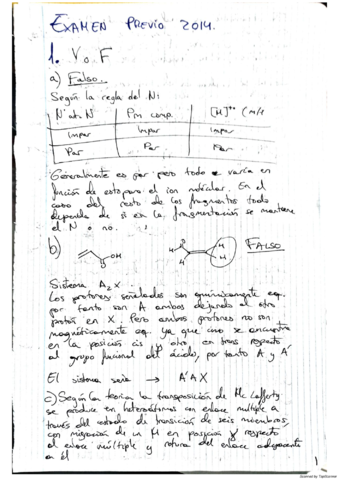 EXAMEN PREVIO 2014.
1. V o F
a) Falso.
Según la regla del N:
Nº at. N Pm comp. [M]+• (m/z)
Impar Impar Impar
Par Par Par
Generalmente es par pero todo varía en
función de esto para el ion molecular. En el
caso del resto de los fragmentos todo
depende de si en la fragmentación se mantiene
el N o no.
b) OH H H H FALSO
Sistema A2X
Los protones señalados son químicamente eq.
por tanto son A ambos dejando al otro
protón en X. Pero ambos protones no son
magnéticamente eq. ya que uno se encuentra
en la posición cis y otro en trans respecto
al grupo funcional del ácido, por tanto A y A'
El sistema sería → A'AX
c) Según la teoría la transposición de Mc Lafferty
se produce en heteroátomos con enlace múltiple a
través del estado de transición de seis miembros,
con migración de un H en posición γ respecto
al enlace múltiple y rotura del enlace adyacente
a él
1
Scanned by TapScanner